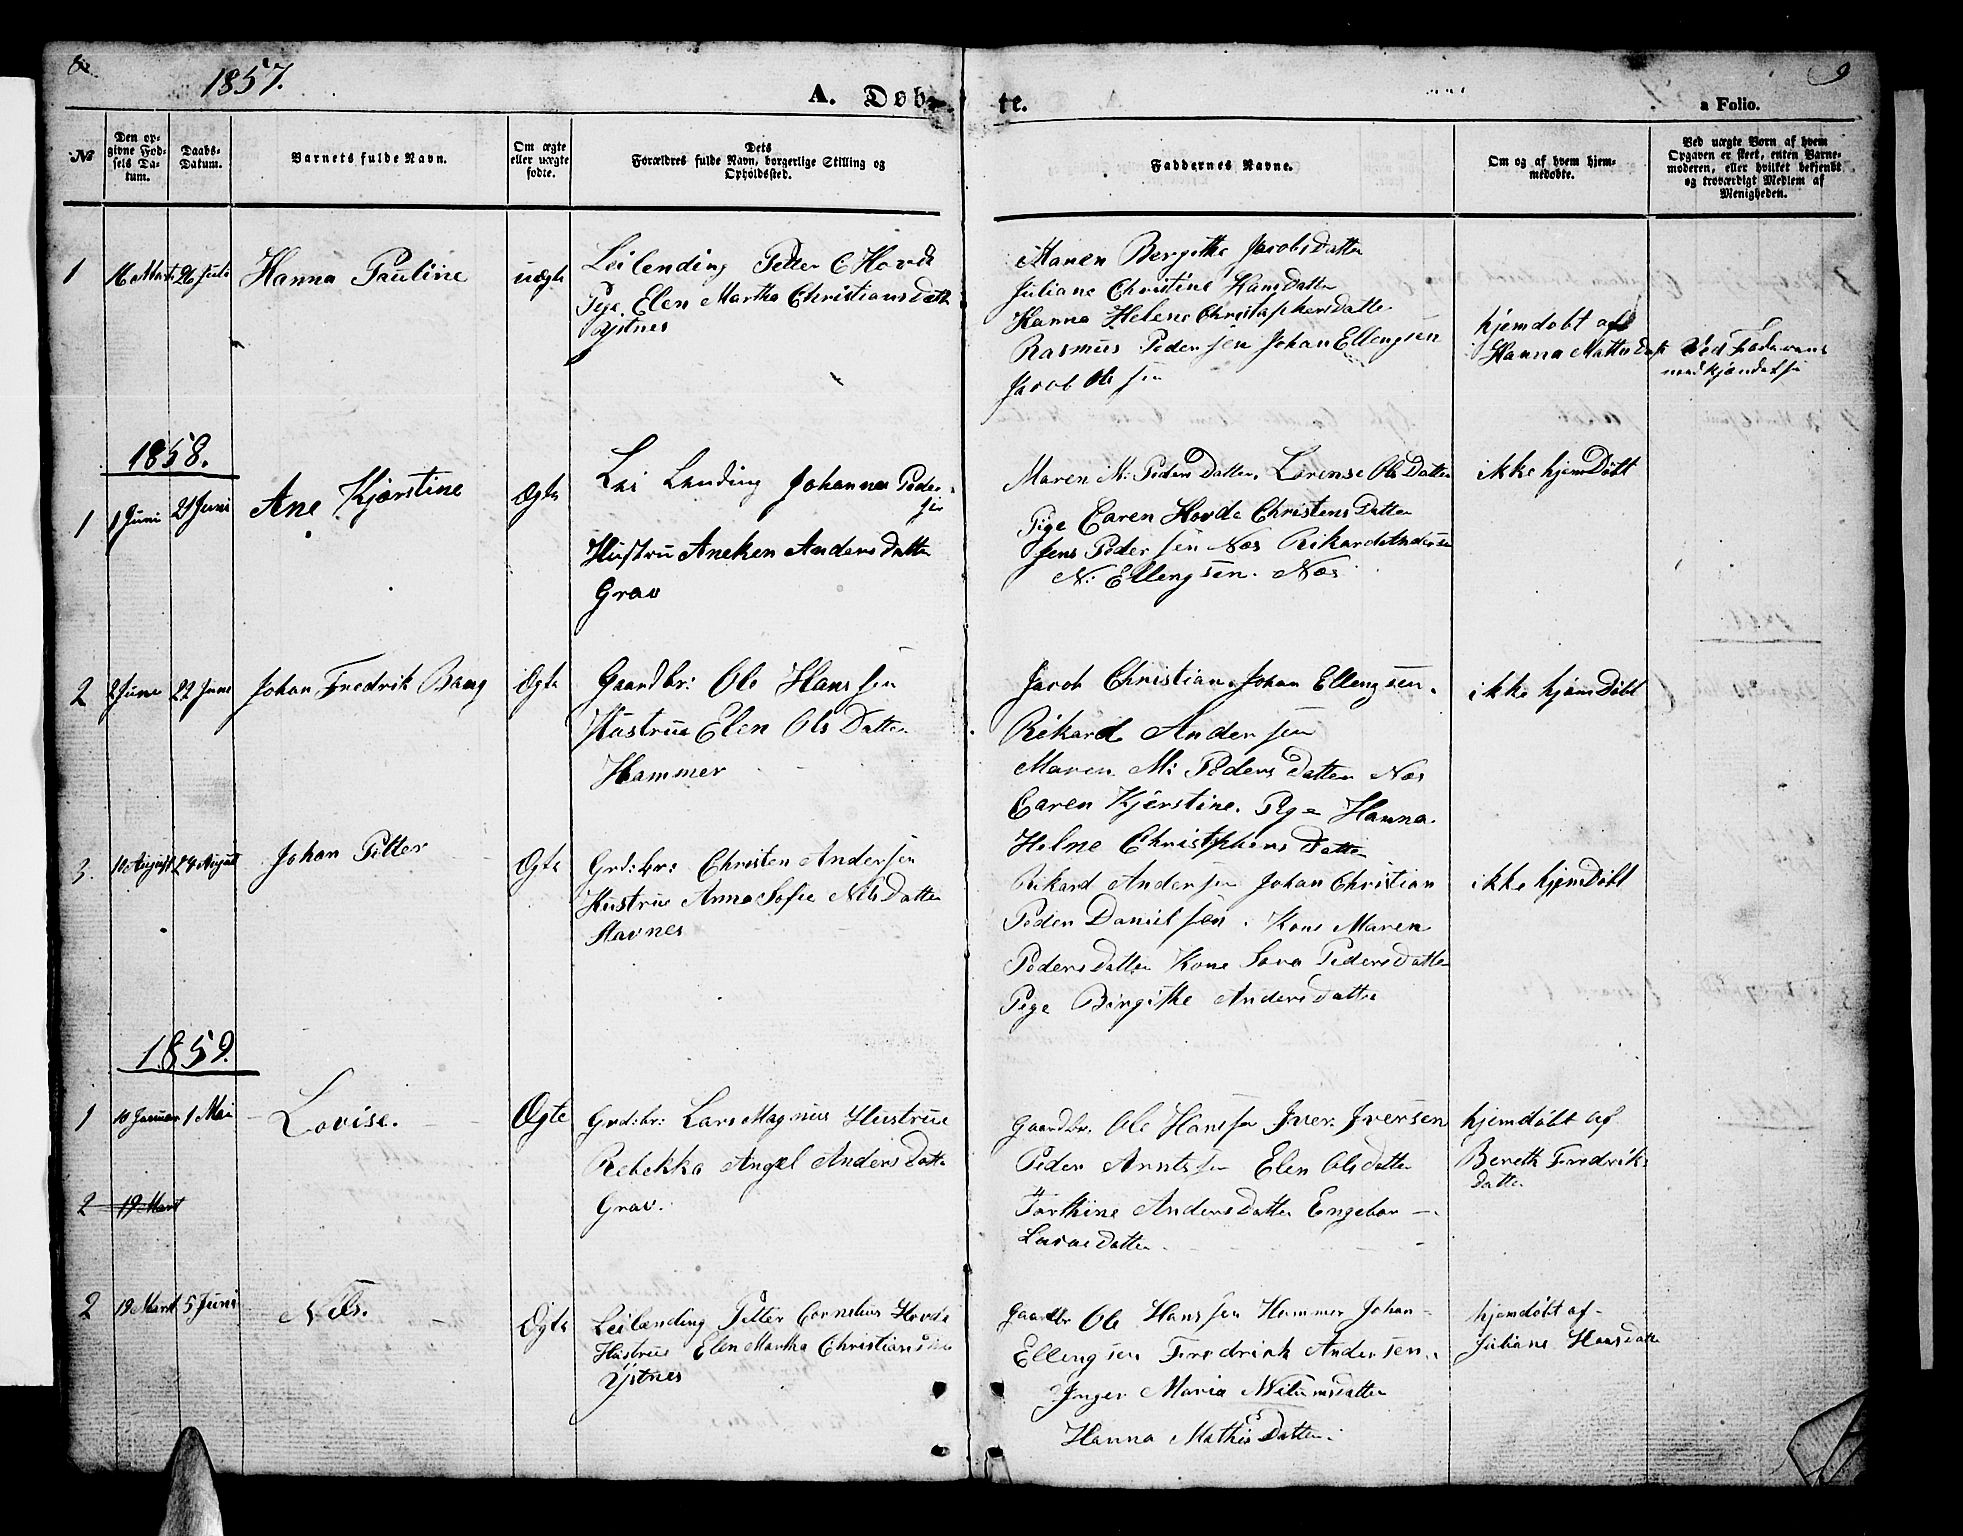 8
1857.
A. Døb-
te.
9
a Folio.
No
Den op-
givne Fød-
sels Da-
tum.
Daabs-
Datum.
Barnets fulde Navn.
Om ægte
eller uægte
fødte.
Dets
Forældres fulde Navn, borgerlige Stilling og
Opholdssted.
Faddernes Navne.
Om og af hvem hjem-
medøbte.
Ved uægte Børn af hvem
Opgaven er skeet, enten Barne-
moderen, eller hvilket bekjendt
og troværdigt Medlem af
Menigheden.
1 16 Marts 26 Juli Hanna Pauline uægte
Leilending Petter C Hovde
Pige Elen Martha Christians Datte
Ystnes
Maren Bergithe Jacobs Datter
Juliane Christine Hans Datter
Hanna Helene Christophers Datter
Rasmus Peder sen Johan Ellengsen
Jacob Ole sen
hjemdøbt af
Hanna Mattes Datt
Ved Faderens
1858.
1 1 Juni 21 Juni Ane Kjørstine Ægte
Lei Lending Johannes Peder
sen
Hustru Aneken Anders Datter
Grav
Maren M: Peders Datter. Lorense Ols Datter
Pige Caren Hovde Christens Datter
Jens Peder sen Næs Rikard Andersen
N: Ellengsen. Næs
ikke hjemDøbt
2 2 Juni 22 Juni Johan Fredrik Bang Ægte
Gaardbr: Ole Hans sen
Hustrue Elen Ols Datter
Hammer
Jacob Christian. Johan Ellengsen.
Rikard Ander sen
Maren M: Peders Datter Næs
Caren Kjerstine. Pige Hanna
Helne Christphers Datter
ikke hjemDøbt
3. 10 August 24 August Johan Petter Ægte
Grd:br: Christen Andersen
Hustrue Anna Sofie Nils Datter
Havnes
Rikard Ander sen Johan Christian
Peder Daniel sen. Kone Maren
Peders Datter Kone Sara Peders Datter
Pige Birgithe Anders Datter
ikke hjemDøbt
1859.
1 10 Januar 1 Mai Lovise. Ægte
Grd:br: Lars Magnus Hustrue
Rebekka Angel Anders Datte
Grav.
Gaardbr. Ole Hans sen Iver Iversen
Peder Arnts sen Elen Ols datter
Torthine Anders Datter Engebor
Laras Datter
hjemdøbt af
Bereth Fredriks
datter
2 19 Mart
2 19 Mart 5 Juni Nils. Ægte
Leilending Petter Cornelius Hovde
Hustrue Elen Martha Christians
Ystnes
Gaardbr Ole Hans sen Hammer Johan
Ellengsen Fredrick Andersen.
Inger Maria Wilumsdatter
Hanna Mathis Datter.
hjemdøbt af
Juliane Hansdatte